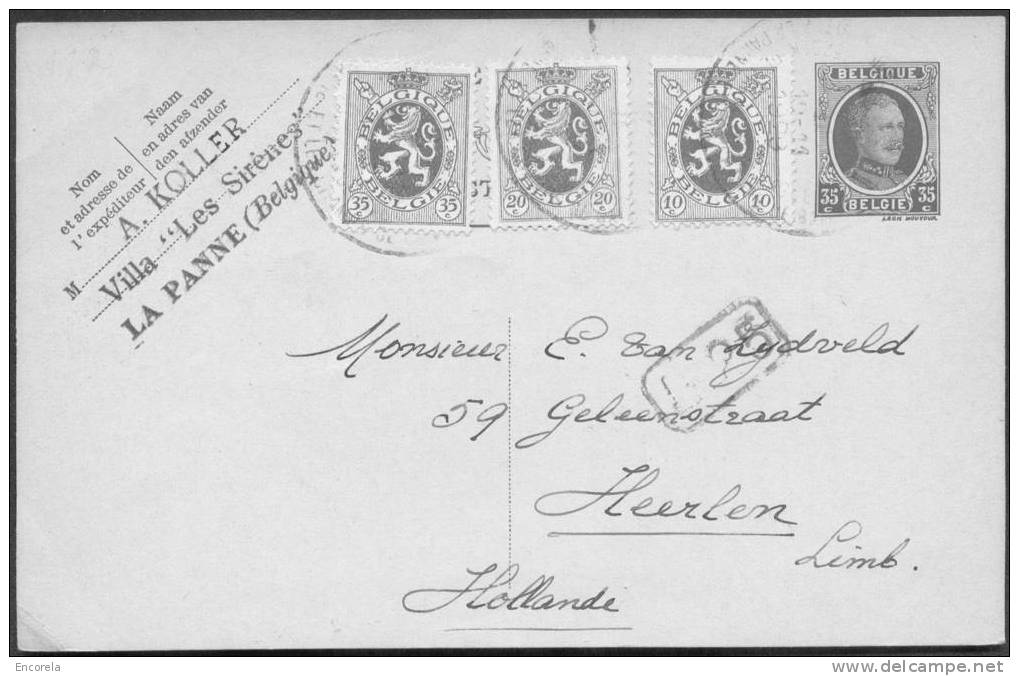 Nom
et adresse de
l'expéditeur
Naam
en adres van
den afzender
M. A. KOLLER
Villa "Les Sirènes"
LA PANNE (Belgique)
BELGIQUE
BELGIE
35 c 35 c
BELGIQUE
BELGIE
20 c 20 c
BELGIQUE
BELGIE
10 c 10 c
BELGIQUE
35 c BELGIE 35 c
Monsieur E. Van Lydveld
59 Geleenstraat
Heerlen
Limb.
Hollande
Encorela
www.delcampe.net